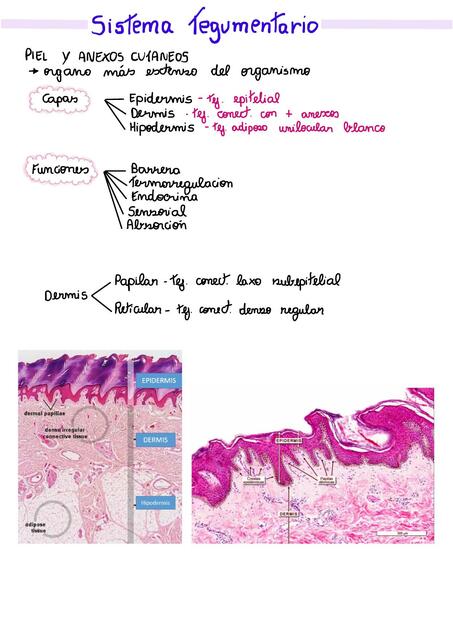 Sistema Tegumentario
PIEL Y ANEXOS CUTANEOS
→ organo más extenso del organismo
Capas
Epidermis - tej. epitelial
Dermis - tej. conect. con + anexos
Hipodermis - tej adiposo unilocular blanco
Funciones
Barrera
Termorregulacion
Endocrina
Sensorial
Absorción
Dermis
Papilar - tej. conect. laxo subepitelial
Reticular - tej. conect. denso regular
EPIDERMIS
dermal papillae
dense irregular
connective tissue
DERMIS
Hipodermis
adipose
tissue
EPIDERMIS
Crestas
epidérmicas
Papilas
dérmicas
DERMIS